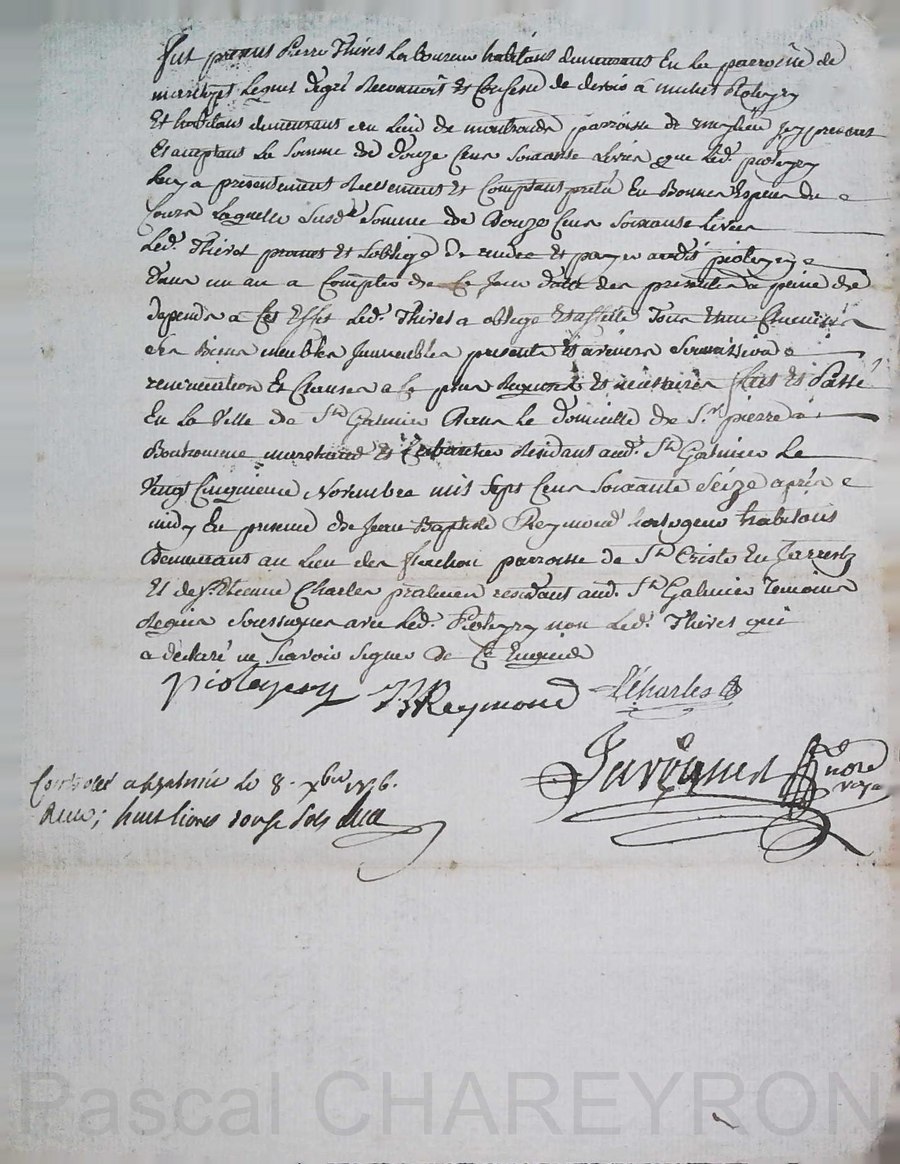 fut presans Pierre Thivet Laboureur habitans demeurans En la parroisse de
Lequel degré Reconnoit Et Confesse de devoir à
Et habitans demeurans au Lieu de parroisse de Icy present
Et acceptans La Somme de douze Cens Soixante Livres que Led. pioteyry
Luy a presentement Reellement Et Comptant preté En Bonnes Especes de
Cours Laquelle Susd.e Somme de Douze Cens Soixante Livres
Led. Thivet promet Et S'oblige De rendre Et payer audit pioteyry
dans un an a Compter de Ce Jour datte des presentes à peine de
depends à Cet Effet Led. Thivet a obligé Et affecté Tous Et un Chacuns
Ses Biens meubles Immeubles presents Et avenirs Soumissions
renonciations Et Clauses a Ce pour Et nécéssaires fait Et Passé
En La Ville de St Galmier Dans Le domicille de Sr. pierre
marchand Et Cabaretier Residant aud. St Galmier Le
Vingt Cinquieme Novembre mil Sept Cens Soixante Seize après
midy En presence de Jean Baptiste Reymond horlogeur habitans
Demeurans au Lieu de parroisse de St Cristo En Jarrest
Et de Sr. Etienne Charles praticien residant aud. St Galmier Temoins
Requis Soussignes avec Led. Pioteyry non Led. Thivet qui
a déclaré ne Scavoir Signer de Ce Enquis
pioteyry JBReymond Echarles
not.re
royal
Controlé a St galmier le 8. Xbre 1776.
Recu; huit livres douze sols
Pascal CHAREYRON